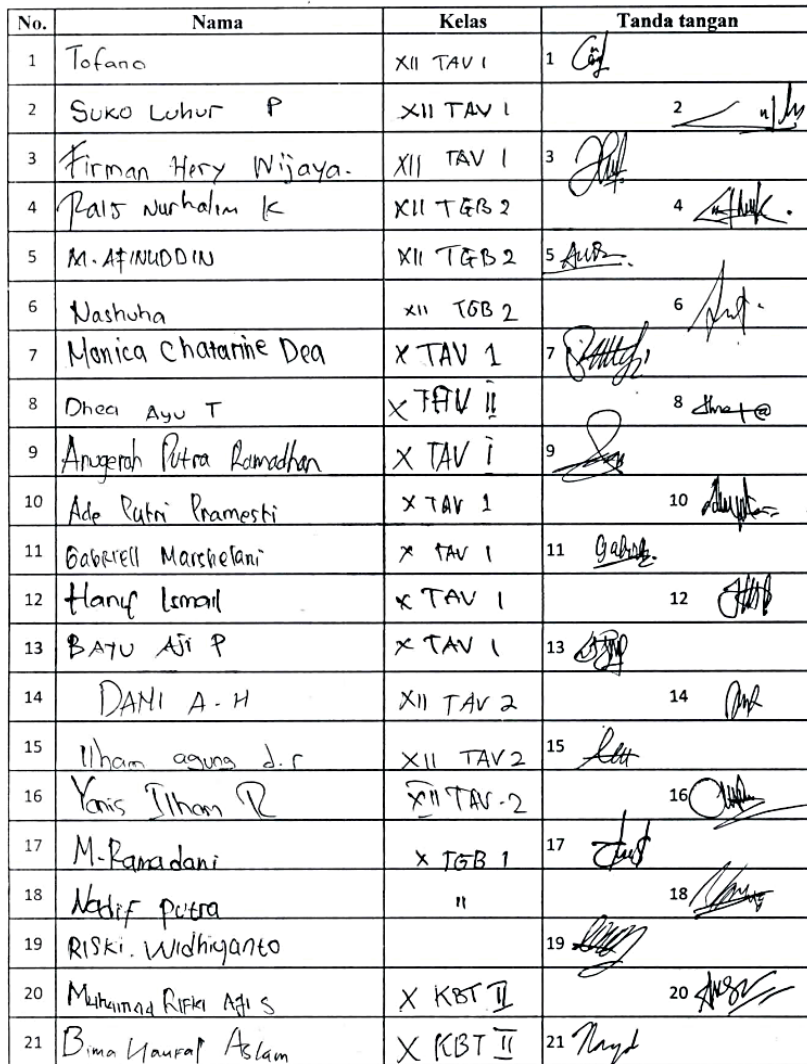 No. Nama Kelas Tanda tangan
1 Tofano XII TAV 1 1
2 Suko Luhur P XII TAV 1 2
3 Firman Hery Wijaya. XII TAV 1 3
4 Rais Nurhalim K XII TGB 2 4
5 M. AFINUDDIN XII TGB 2 5
6 Nashuha XII TGB 2 6
7 Monica Chatarine Dea X TAV 1 7
8 Dhea Ayu T X TAV II 8
9 Anugerah Putra Ramadhan X TAV I 9
10 Ade Putri Pramesti X TAV 1 10
11 Gabriell Marshelani X TAV 1 11
12 Hanif Ismail X TAV 1 12
13 BAYU Aji P X TAV 1 13
14 DANI A.H XII TAV 2 14
15 Ilham agung d.r XII TAV 2 15
16 Yanis Ilham R XII TAV-2 16
17 M.Ramadani X TGB 1 17
18 Nadif putra " 18
19 RISKi. Widhiyanto 19
20 Muhamad RIFKI AJI S X KBT II 20
21 Bima Aslam X KBT II 21